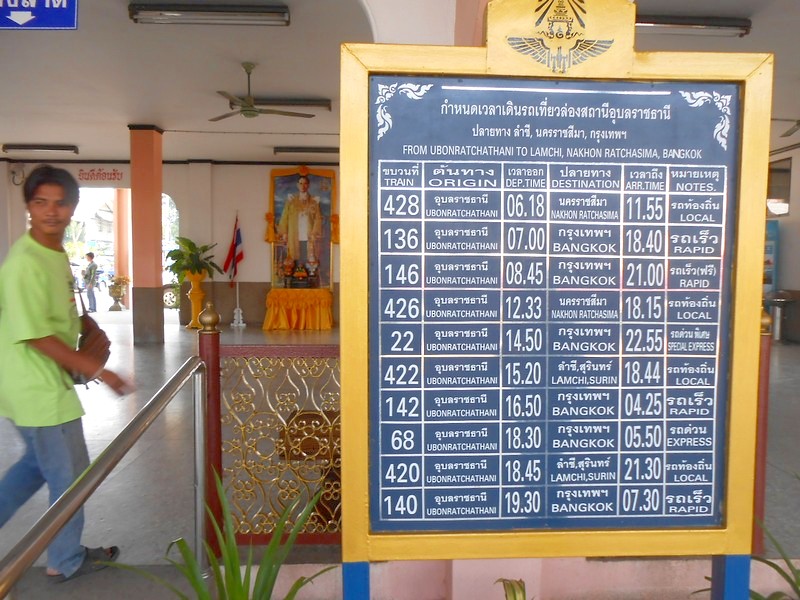 ยินดีต้อนรับ
กำหนดเวลาเดินรถเที่ยวล่องสถานีอุบลราชธานี
ปลายทาง ลำชี, นครราชสีมา, กรุงเทพฯ
FROM UBONRATCHATHANI TO LAMCHI, NAKHON RATCHASIMA, BANGKOK
ขบวนที่ ต้นทาง เวลาออก ปลายทาง เวลาถึง หมายเหตุ
TRAIN ORIGIN DEP.TIME DESTINATION ARR.TIME NOTES.
428 อุบลราชธานี 06.18 นครราชสีมา 11.55 รถท้องถิ่น
UBONRATCHATHANI NAKHON RATCHASIMA LOCAL
136 อุบลราชธานี 07.00 กรุงเทพฯ 18.40 รถเร็ว
UBONRATCHATHANI BANGKOK RAPID
146 อุบลราชธานี 08.45 กรุงเทพฯ 21.00 รถเร็ว(ฟรี)
UBONRATCHATHANI BANGKOK RAPID
426 อุบลราชธานี 12.33 นครราชสีมา 18.15 รถท้องถิ่น
UBONRATCHATHANI NAKHON RATCHASIMA LOCAL
22 อุบลราชธานี 14.50 กรุงเทพฯ 22.55 รถด่วน พิเศษ
UBONRATCHATHANI BANGKOK SPECIAL EXPRESS
422 อุบลราชธานี 15.20 ลำชี,สุรินทร์ 18.44 รถท้องถิ่น
UBONRATCHATHANI LAMCHI,SURIN LOCAL
142 อุบลราชธานี 16.50 กรุงเทพฯ 04.25 รถเร็ว
UBONRATCHATHANI BANGKOK RAPID
68 อุบลราชธานี 18.30 กรุงเทพฯ 05.50 รถด่วน
UBONRATCHATHANI BANGKOK EXPRESS
420 อุบลราชธานี 18.45 ลำชี,สุรินทร์ 21.30 รถท้องถิ่น
UBONRATCHATHANI LAMCHI,SURIN LOCAL
140 อุบลราชธานี 19.30 กรุงเทพฯ 07.30 รถเร็ว
UBONRATCHATHANI BANGKOK RAPID